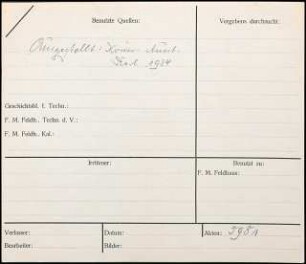 Benutzte Quellen:
Vergebens durchsucht:
Kat. 1924
Geschichtsbl. f. Techn.:
F. M. Feldh., Techn. d. V.:
F. M. Feldh., Kal.:
Irrtümer:
Benutzt zu:
F. M. Feldhaus:
Verfasser:
Datum:
Akten: 5951
Bearbeiter:
Bilder: